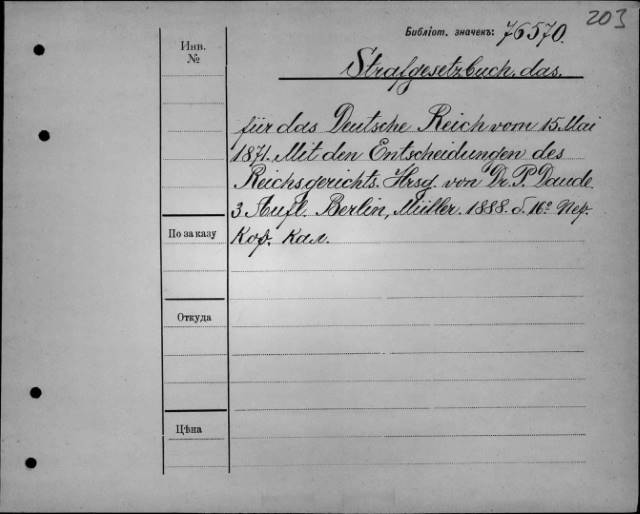 203
Библіот. значекъ: 76570.
Инв.
№
Strafgesetzbuch, das.
für das Deutsche Reich vom 15. Mai
1871. Mit den Entscheidungen des
Reichsgerichts. Hrsg. von Dr. P. Daude.
3 Aufl. Berlin, Müller. 1888. d. 16º Пер.
По заказу
Кор. кал.
Откуда
Цѣна